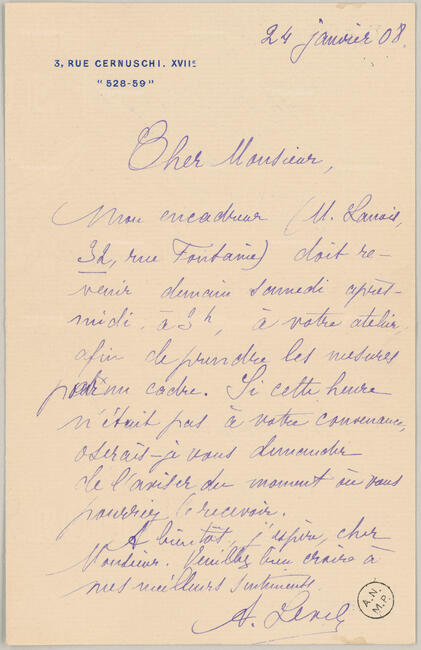 24 janvier 08.
3, RUE CERNUSCHI. XVIIe
"528-59"
Cher Monsieur,
Mon encadreur (M. Lanois,
32, rue Fontaine) doit re-
venir demain samedi après-
midi, à 3h, à votre atelier,
afin de prendre les mesures
pour un cadre. Si cette heure
n'était pas à votre convenance,
oserais-je vous demander
de l'aviser du moment où vous
pourriez le recevoir.
A bientôt, j'espère, cher
Monsieur. Veuillez bien croire à
mes meilleurs sentiments
A. Level
A.N.
M.P.